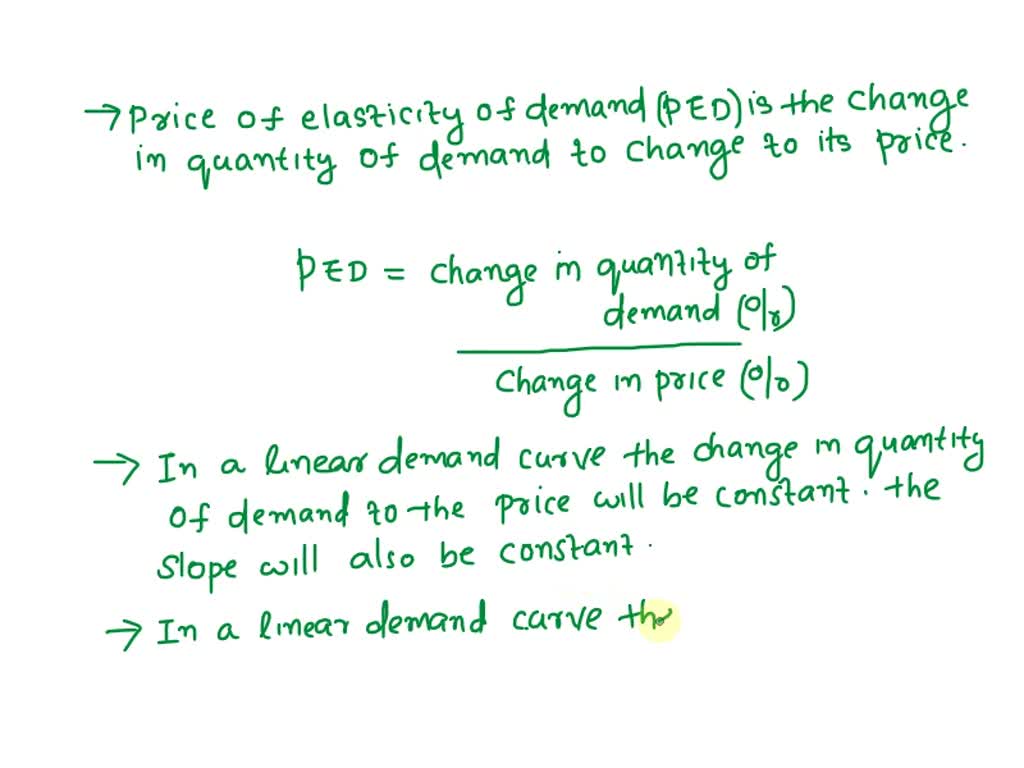 → Price of elasticity of demand (PED) is the change
in quantity of demand to change to its price.
PED = change in quantity of
demand (%)
Change in price (%)
→ In a linear demand curve the change in quantity
of demand to the price will be constant. the
slope will also be constant.
→ In a linear demand curve the